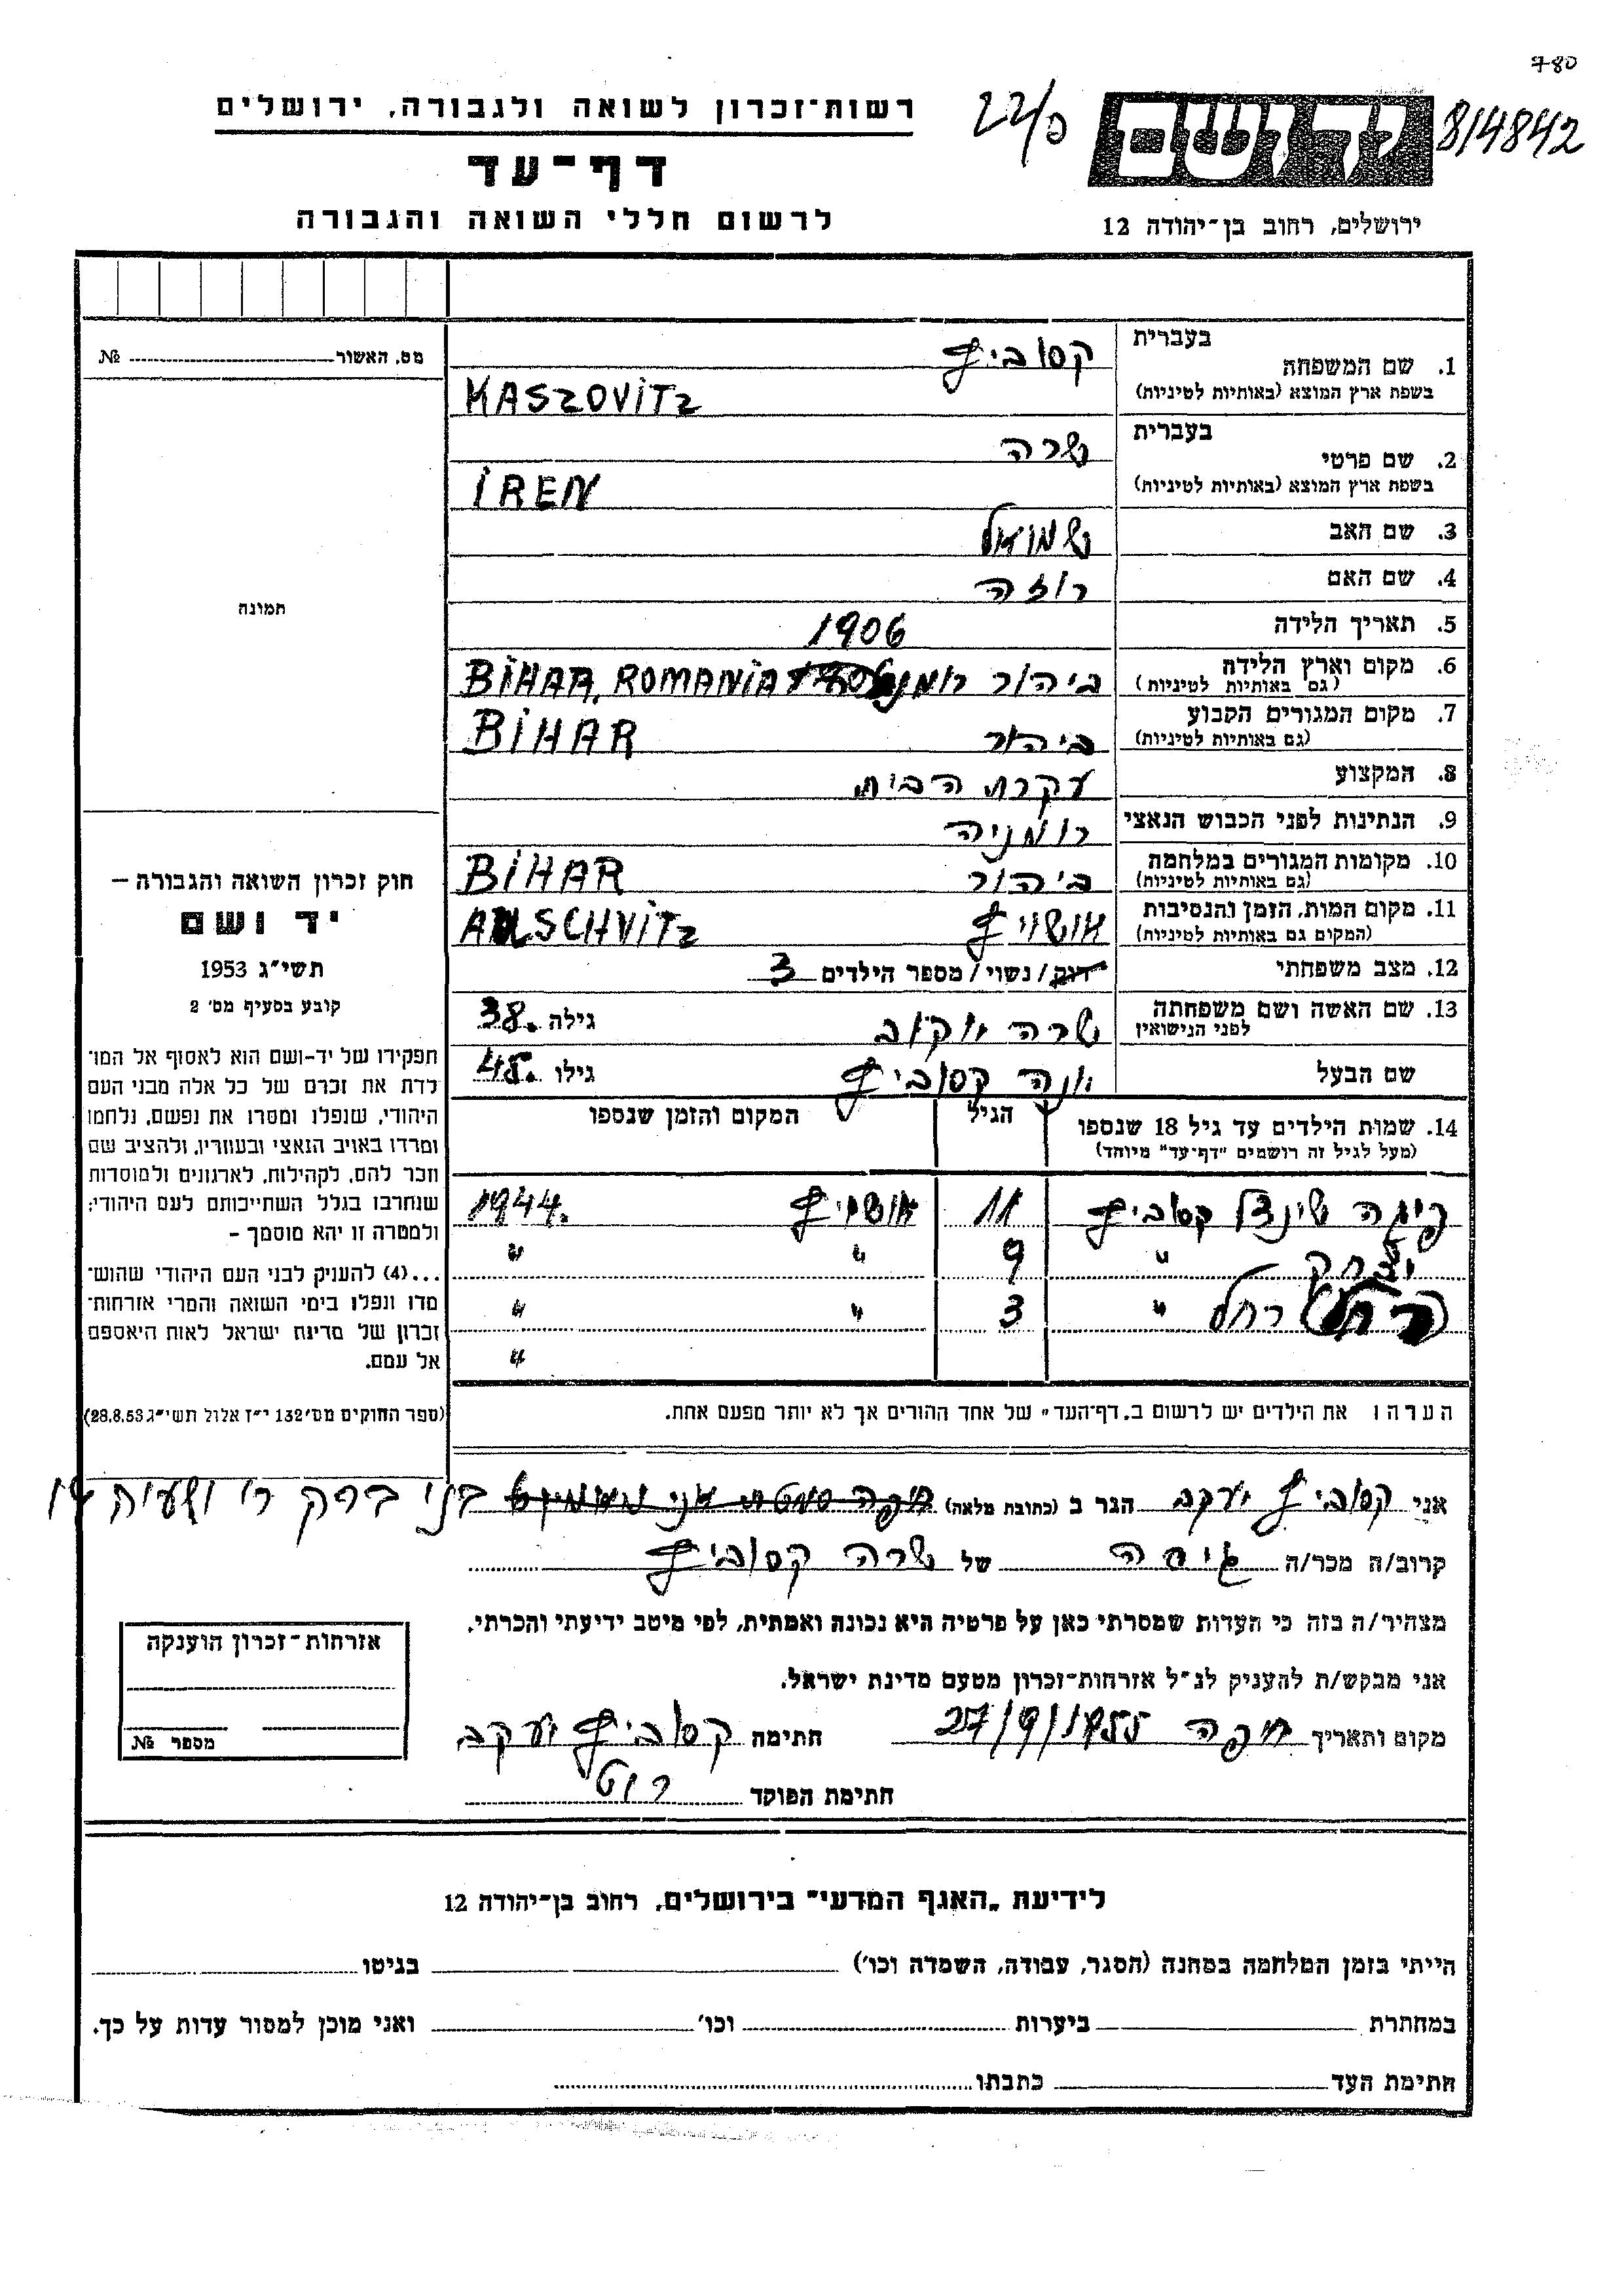 780
רשות־זכרון לשואה ולגבורה, ירושלים
22/פ
יד ושם
8/4842
דף־עד
לרשום חללי השואה והגבורה
ירושלים, רחוב בן־יהודה 12
מס. האשור № 
בעברית
1. שם המשפחה
קסוביץ
בשפת ארץ המוצא (באותיות לטיניות)
KASZOVITZ
בעברית
2. שם פרטי
שרה
בשפת ארץ המוצא (באותיות לטיניות)
IREN
3. שם האב שמואל
4. שם האם רוזה
5. תאריך הלידה 1906
6. מקום וארץ הלידה ביהור BIHAR, ROMANIA
(גם באותיות לטיניות)
7. מקום המגורים הקבוע ביהור BIHAR
(גם באותיות לטיניות)
8. המקצוע עקרת הבית
9. הנתינות לפני הכבוש הנאצי רומניה
10. מקומות המגורים במלחמה ביהור BIHAR
(גם באותיות לטיניות)
11. מקום המות, הזמן והנסיבות אושויץ AUSCHVITZ
(המקום גם באותיות לטיניות)
12. מצב משפחתי רווק/נשוי/מספר הילדים 3
13. שם האשה ושם משפחתה שרה גילה 38.
לפני הנישואין
שם הבעל קסוביץ גילו 45.
14. שמות הילדים עד גיל 18 שנספו הגיל המקום והזמן שנספו
(מעל לגיל זה רושמים "דף־עד" מיוחד)
שינדל קסוביץ 11 אושויץ 1944.
יצחק " 9 " "
רחל " 3 " "
"
הערה: את הילדים יש לרשום ב„דף־העד" של אחד ההורים אך לא יותר מפעם אחת.
תמונה
חוק זכרון השואה והגבורה –
יד ושם
תשי"ג 1953
קובע בסעיף מס' 2
תפקידו של יד־ושם הוא לאסוף אל המו־
לדת את זכרם של כל אלה מבני העם
היהודי, שנפלו ומסרו את נפשם, נלחמו
ומרדו באויב הנאצי ובעוזריו, ולהציב שם
וזכר להם, לקהילות, לארגונים ולמוסדות
שנחרבו בגלל השתייכותם לעם היהודי;
ולמטרה זו יהא מוסמך –
...(4) להעניק לבני העם היהודי שהוש־
מדו ונפלו בימי השואה והמרי אזרחות־
זכרון של מדינת ישראל לאות היאספם
אל עמם.
(ספר החוקים מס' 132 י"ז אלול תשי"ג 28.8.53)
אני קסוביץ יעקב הגר ב (כתובת מלאה) בני ברק
קרוב/ה מכר/ה גיסה של שרה קסוביץ
מצהיר/ה בזה כי העדות שמסרתי כאן על פרטיה היא נכונה ואמתית, לפי מיטב ידיעתי והכרתי.
אני מבקש/ת להעניק לנ"ל אזרחות־זכרון מטעם מדינת ישראל.
מקום ותאריך חיפה 27/9/1955 חתימה קסוביץ יעקב
חתימת הפוקד רוט
אזרחות־זכרון הוענקה
מספר №
לידיעת „האגף המדעי" בירושלים, רחוב בן־יהודה 12
הייתי בזמן המלחמה במחנה (הסגר, עבודה, השמדה וכו') בגיטו
במחתרת ביערות וכו' ואני מוכן למסור עדות על כך.
חתימת העד כתבתו